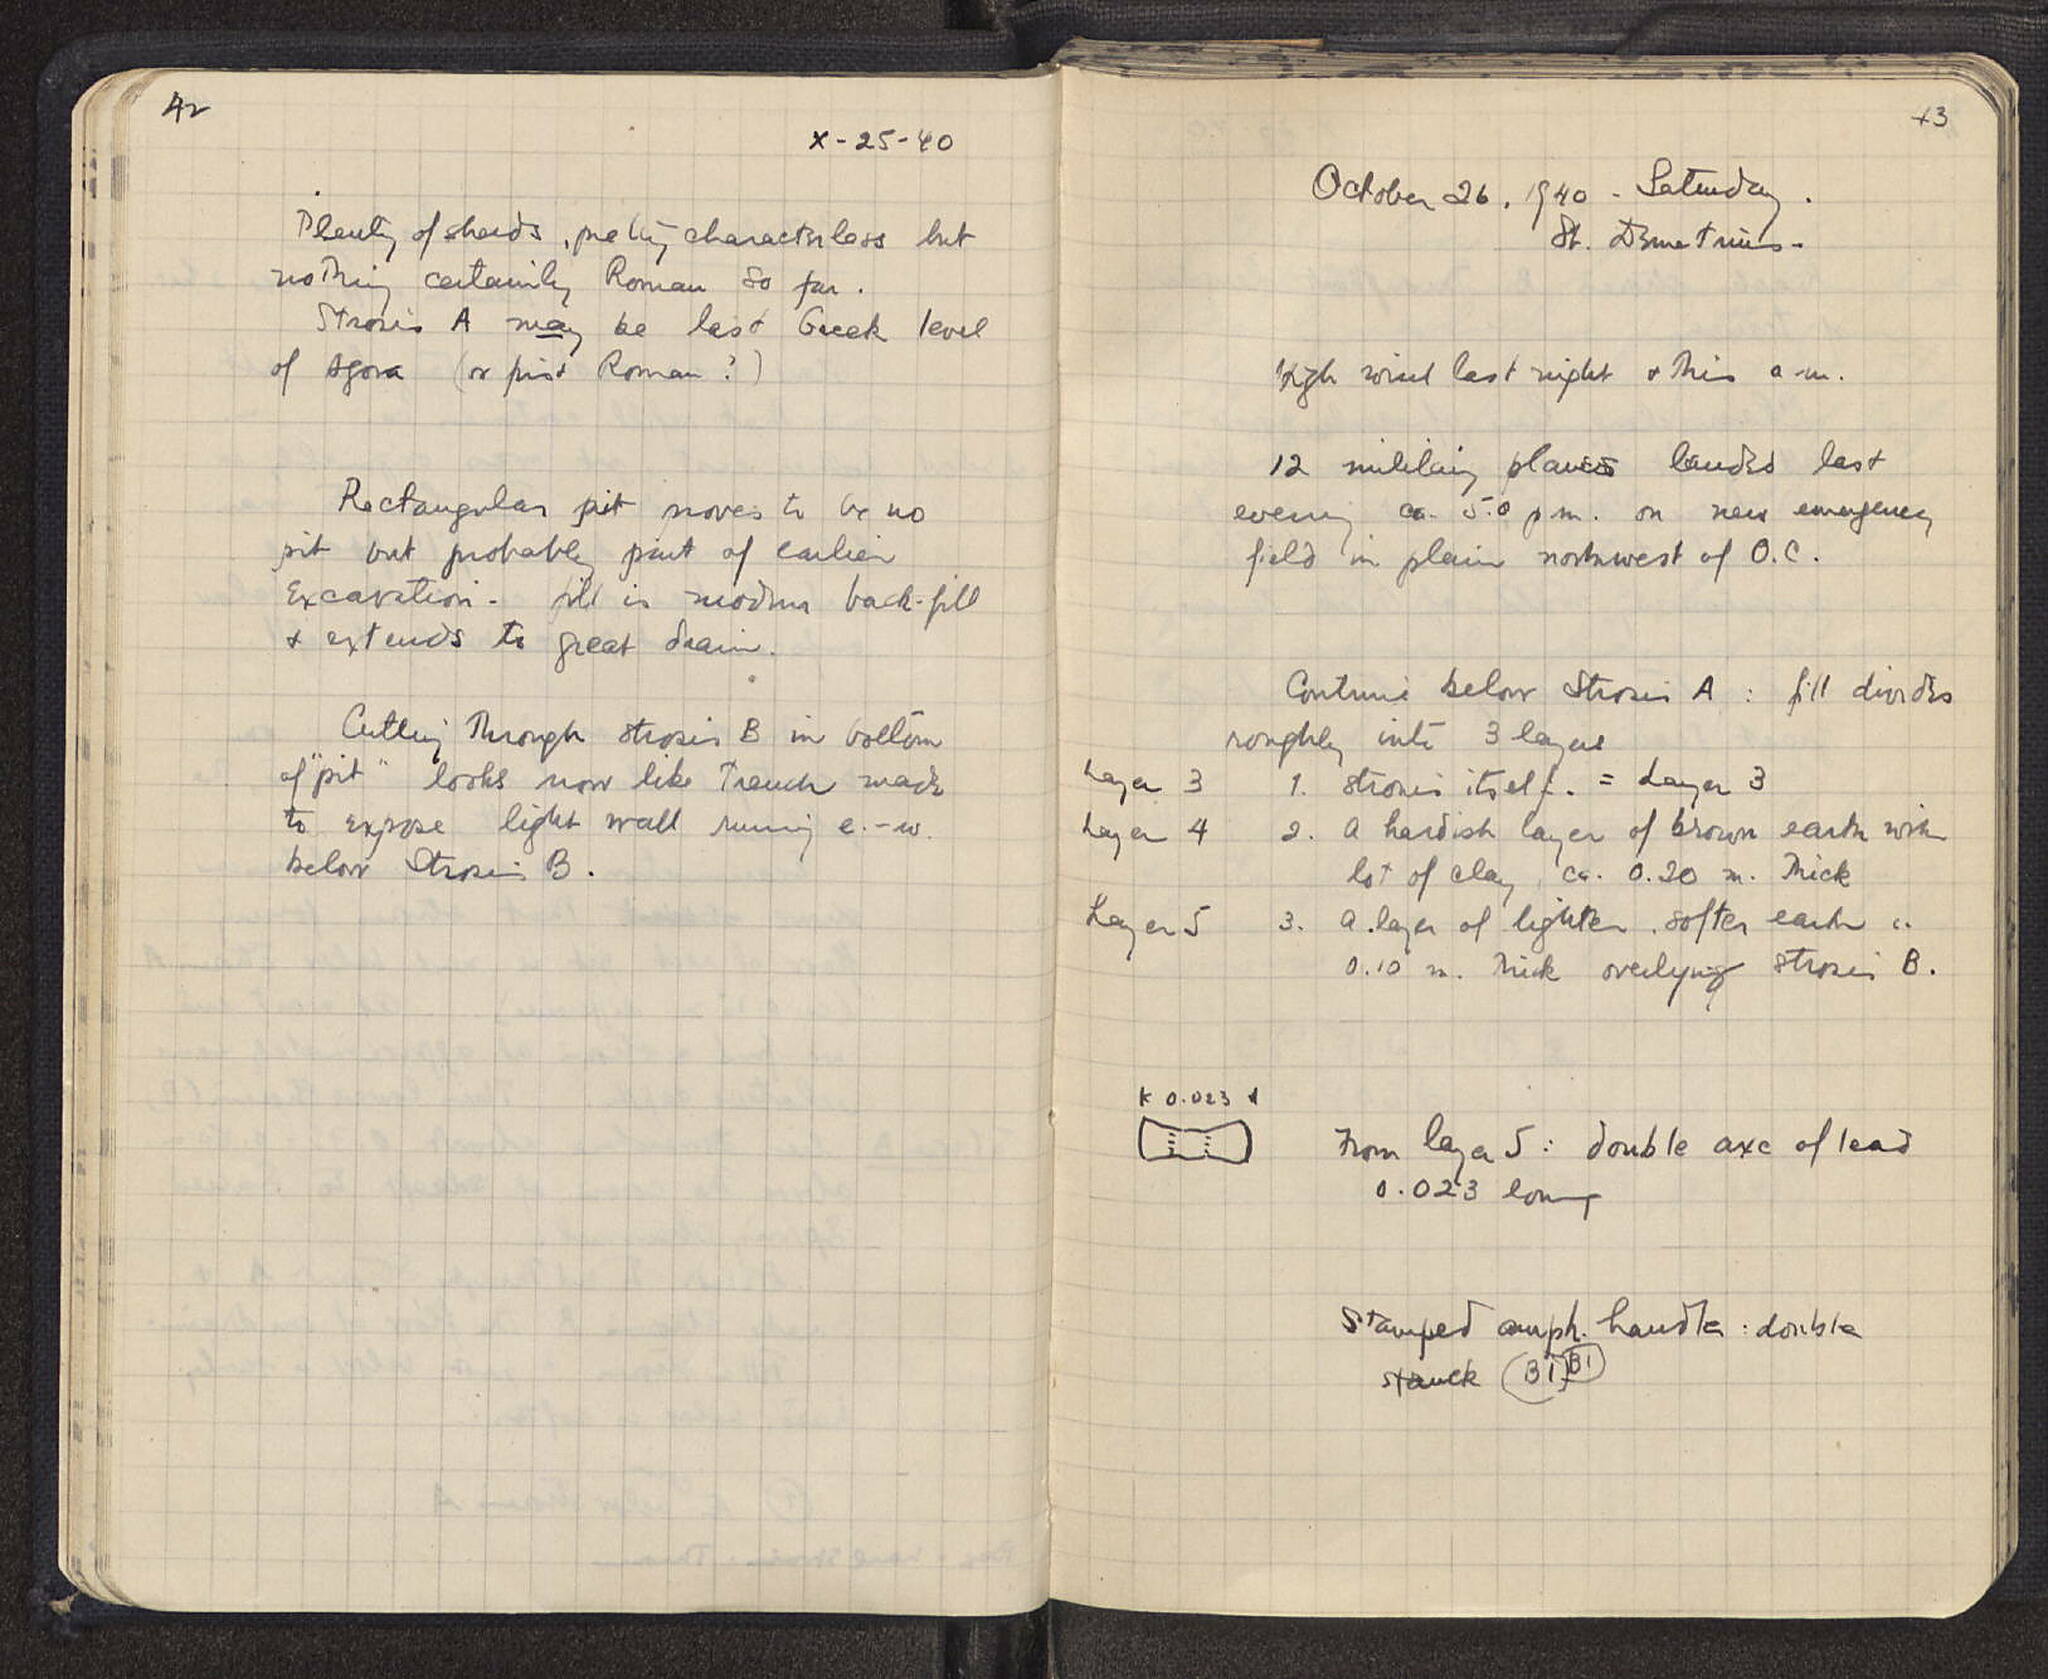 42
X-25-40
Plenty of sherds, pretty characterless but
nothing certainly Roman so far.
Strosis A may be last Greek level
of Agora (or first Roman?)
Rectangular pit proves to be no
pit but probably part of earlier
Excavation - fill is modern back-fill
& extends to great drain.
Cutting through strosis B in bottom
of "pit" looks now like Trench made
to expose light wall running e.-w.
below Strosis B.
43
October 26, 1940 - Saturday.
St. Demetrius -
High wind last night & this a.m.
12 military planes landed last
evening ca. 5.0 p.m. on new emergency
field in plain northwest of O.C.
Continue below Strosis A : fill divides
roughly into 3 layers
Layer 3 1. strosis itself. = Layer 3
Layer 4 2. a hardish layer of brown earth with
lot of clay, ca. 0.20 m. thick
Layer 5 3. a layer of lighter, softer earth
0.10 m. thick overlying strosis B.
0.023
From layer 5: double axe of lead
0.023 long
Stamped amph. handle: double
struck BI BI